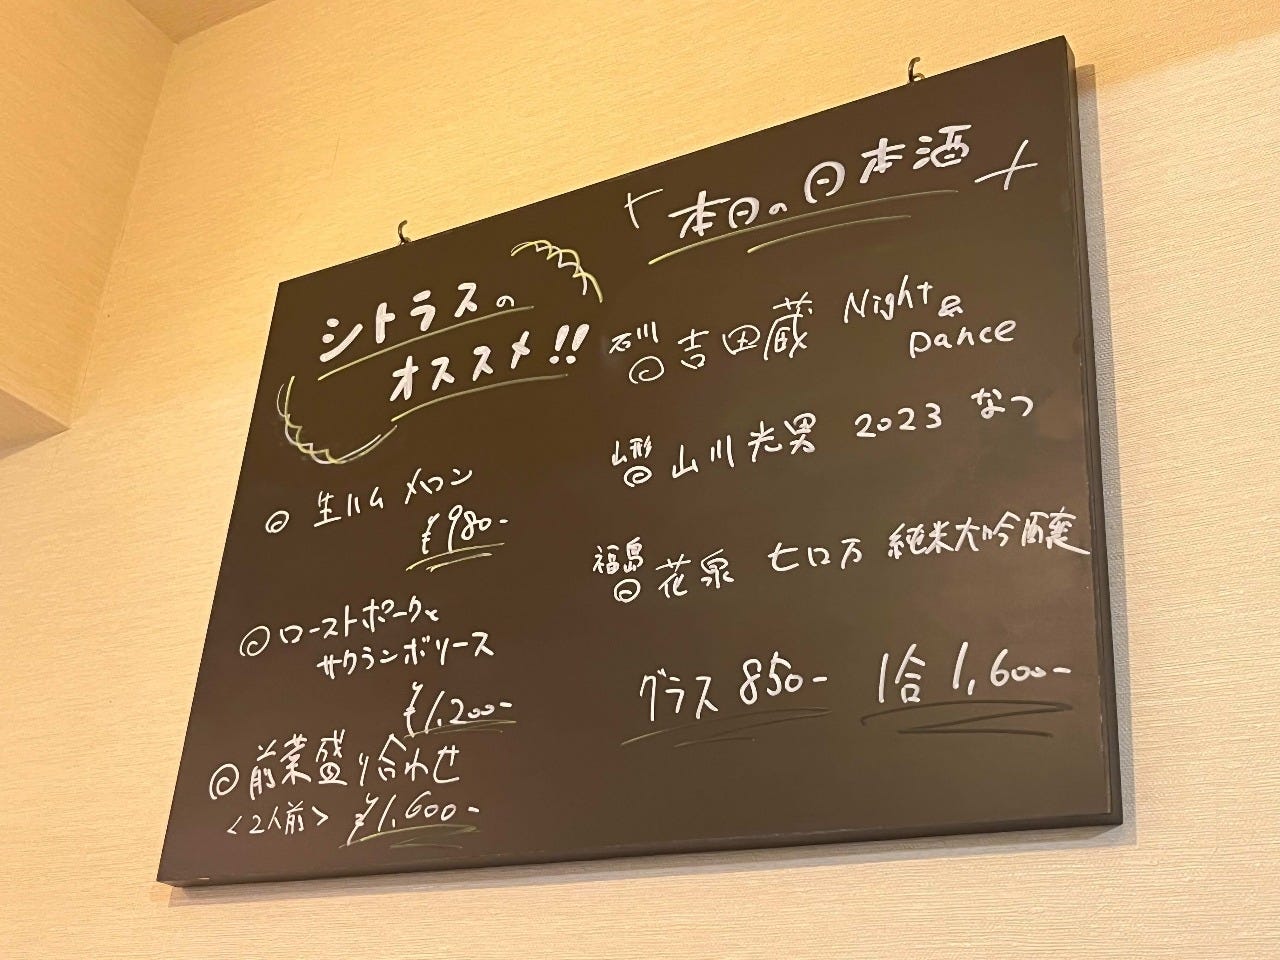 シトラスの
オススメ!!
◎ 生ハムメロン
¥980-
◎ ローストポークと
サクランボソース
¥1,200-
◎ 前菜盛り合わせ
<2人前> ¥1,600-
本日の日本酒
石川
◎ 吉田蔵 Night &
Dance
山形
◎ 山川光男 2023 なつ
福島
◎ 花泉 七ロ万 純米大吟醸
グラス 850- 1合 1,600-